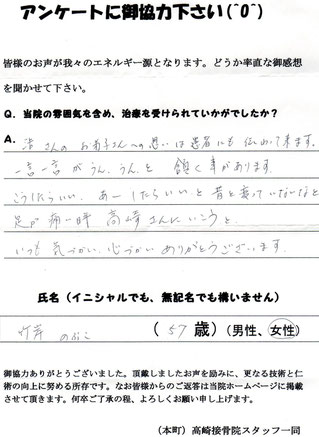 アンケートに御協力下さい(^0^)
皆様のお声が我々のエネルギー源となります。どうか率直な御感想
を聞かせて下さい。
Q. 当院の雰囲気を含め、治療を受けられていかがでしたか?
A. 浩さんのお弟子さんへの思いは患者にも伝わって来ます。
一言一言が うん、うん、と 頷く事があります。
こうしたらいい、あーしたらいい、と昔と変っていないなと
足が痛い時 高崎さんにいこうと、
いつも気づかい、心づかいありがとうございます。
氏名（イニシャルでも、無記名でも構いません）
のぶこ （57 歳）（男性、女性）
御協力ありがとうございました。頂戴しましたお声を励みに、更なる技術と仁
術の向上に努める所存です。なお皆様からのご返答は当院ホームページに掲載
させて頂きます。何卒ご了承の程、よろしくお願い申し上げます。
（本町）高崎接骨院スタッフ一同